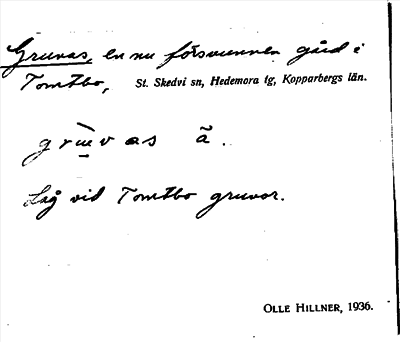 Gruvas, en nu försvunnen gård i
Tomtbo, St. Skedvi sn, Hedemora tg, Kopparbergs län.
grɯ̀vas ã.
Låg vid Tomtbo gruvor.
OLLE HILLNER, 1936.